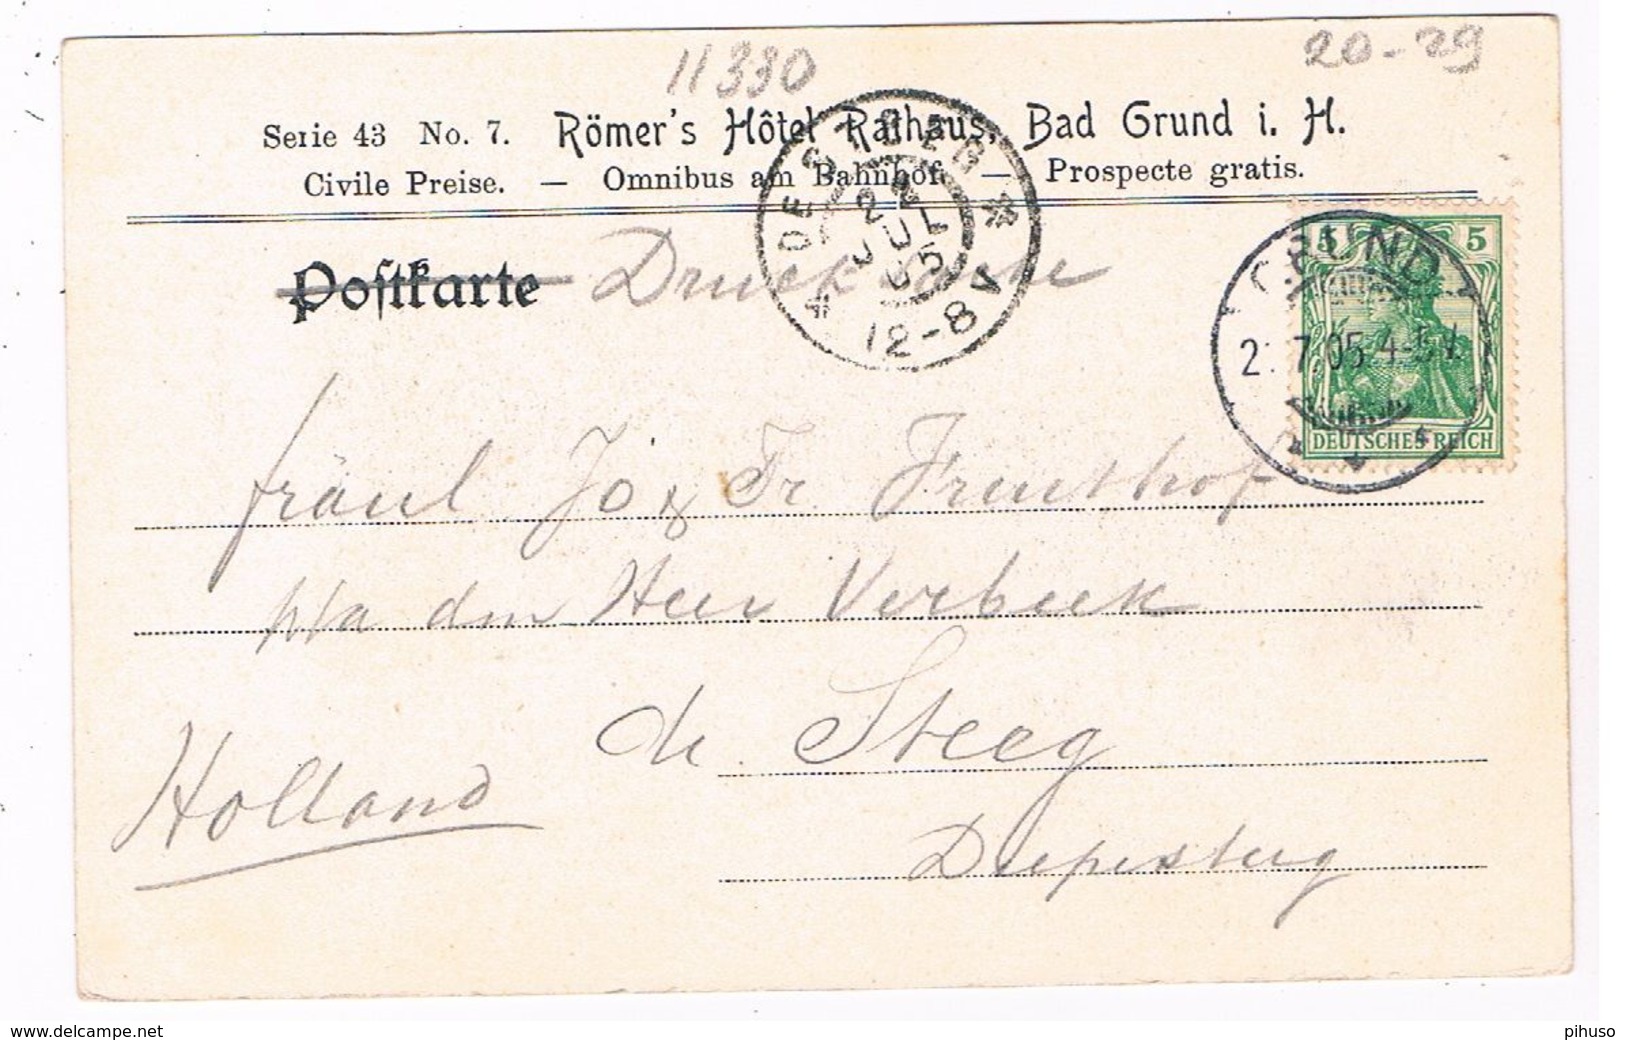 11330
20-29
Serie 43 No. 7. Römer's Hôtel Rathaus, Bad Grund i. H.
Civile Preise. — Omnibus am Bahnhof. — Prospecte gratis.
Postkarte Drucksache
DE STEEG
22
JUL
05
12-8V
GRUND
2 . 7. 05 4-5V.
5 5
DEUTSCHES REICH
Fräul Jo & Fr.
den Heer Verbeek
de Steeg
Holland
Diepesteeg
www.delcampe.net
pihuso